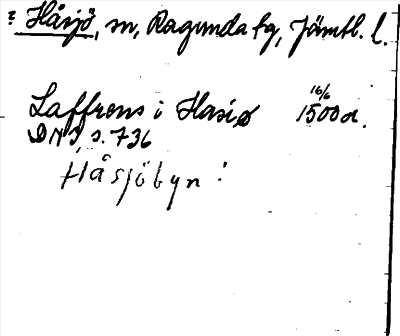 ? Håsjö, sn, Ragunda tg, Jämtl. l.
Laffrens i Hasiø 16/6 1500 a.
DN I, s. 736
Håsjöbyn!